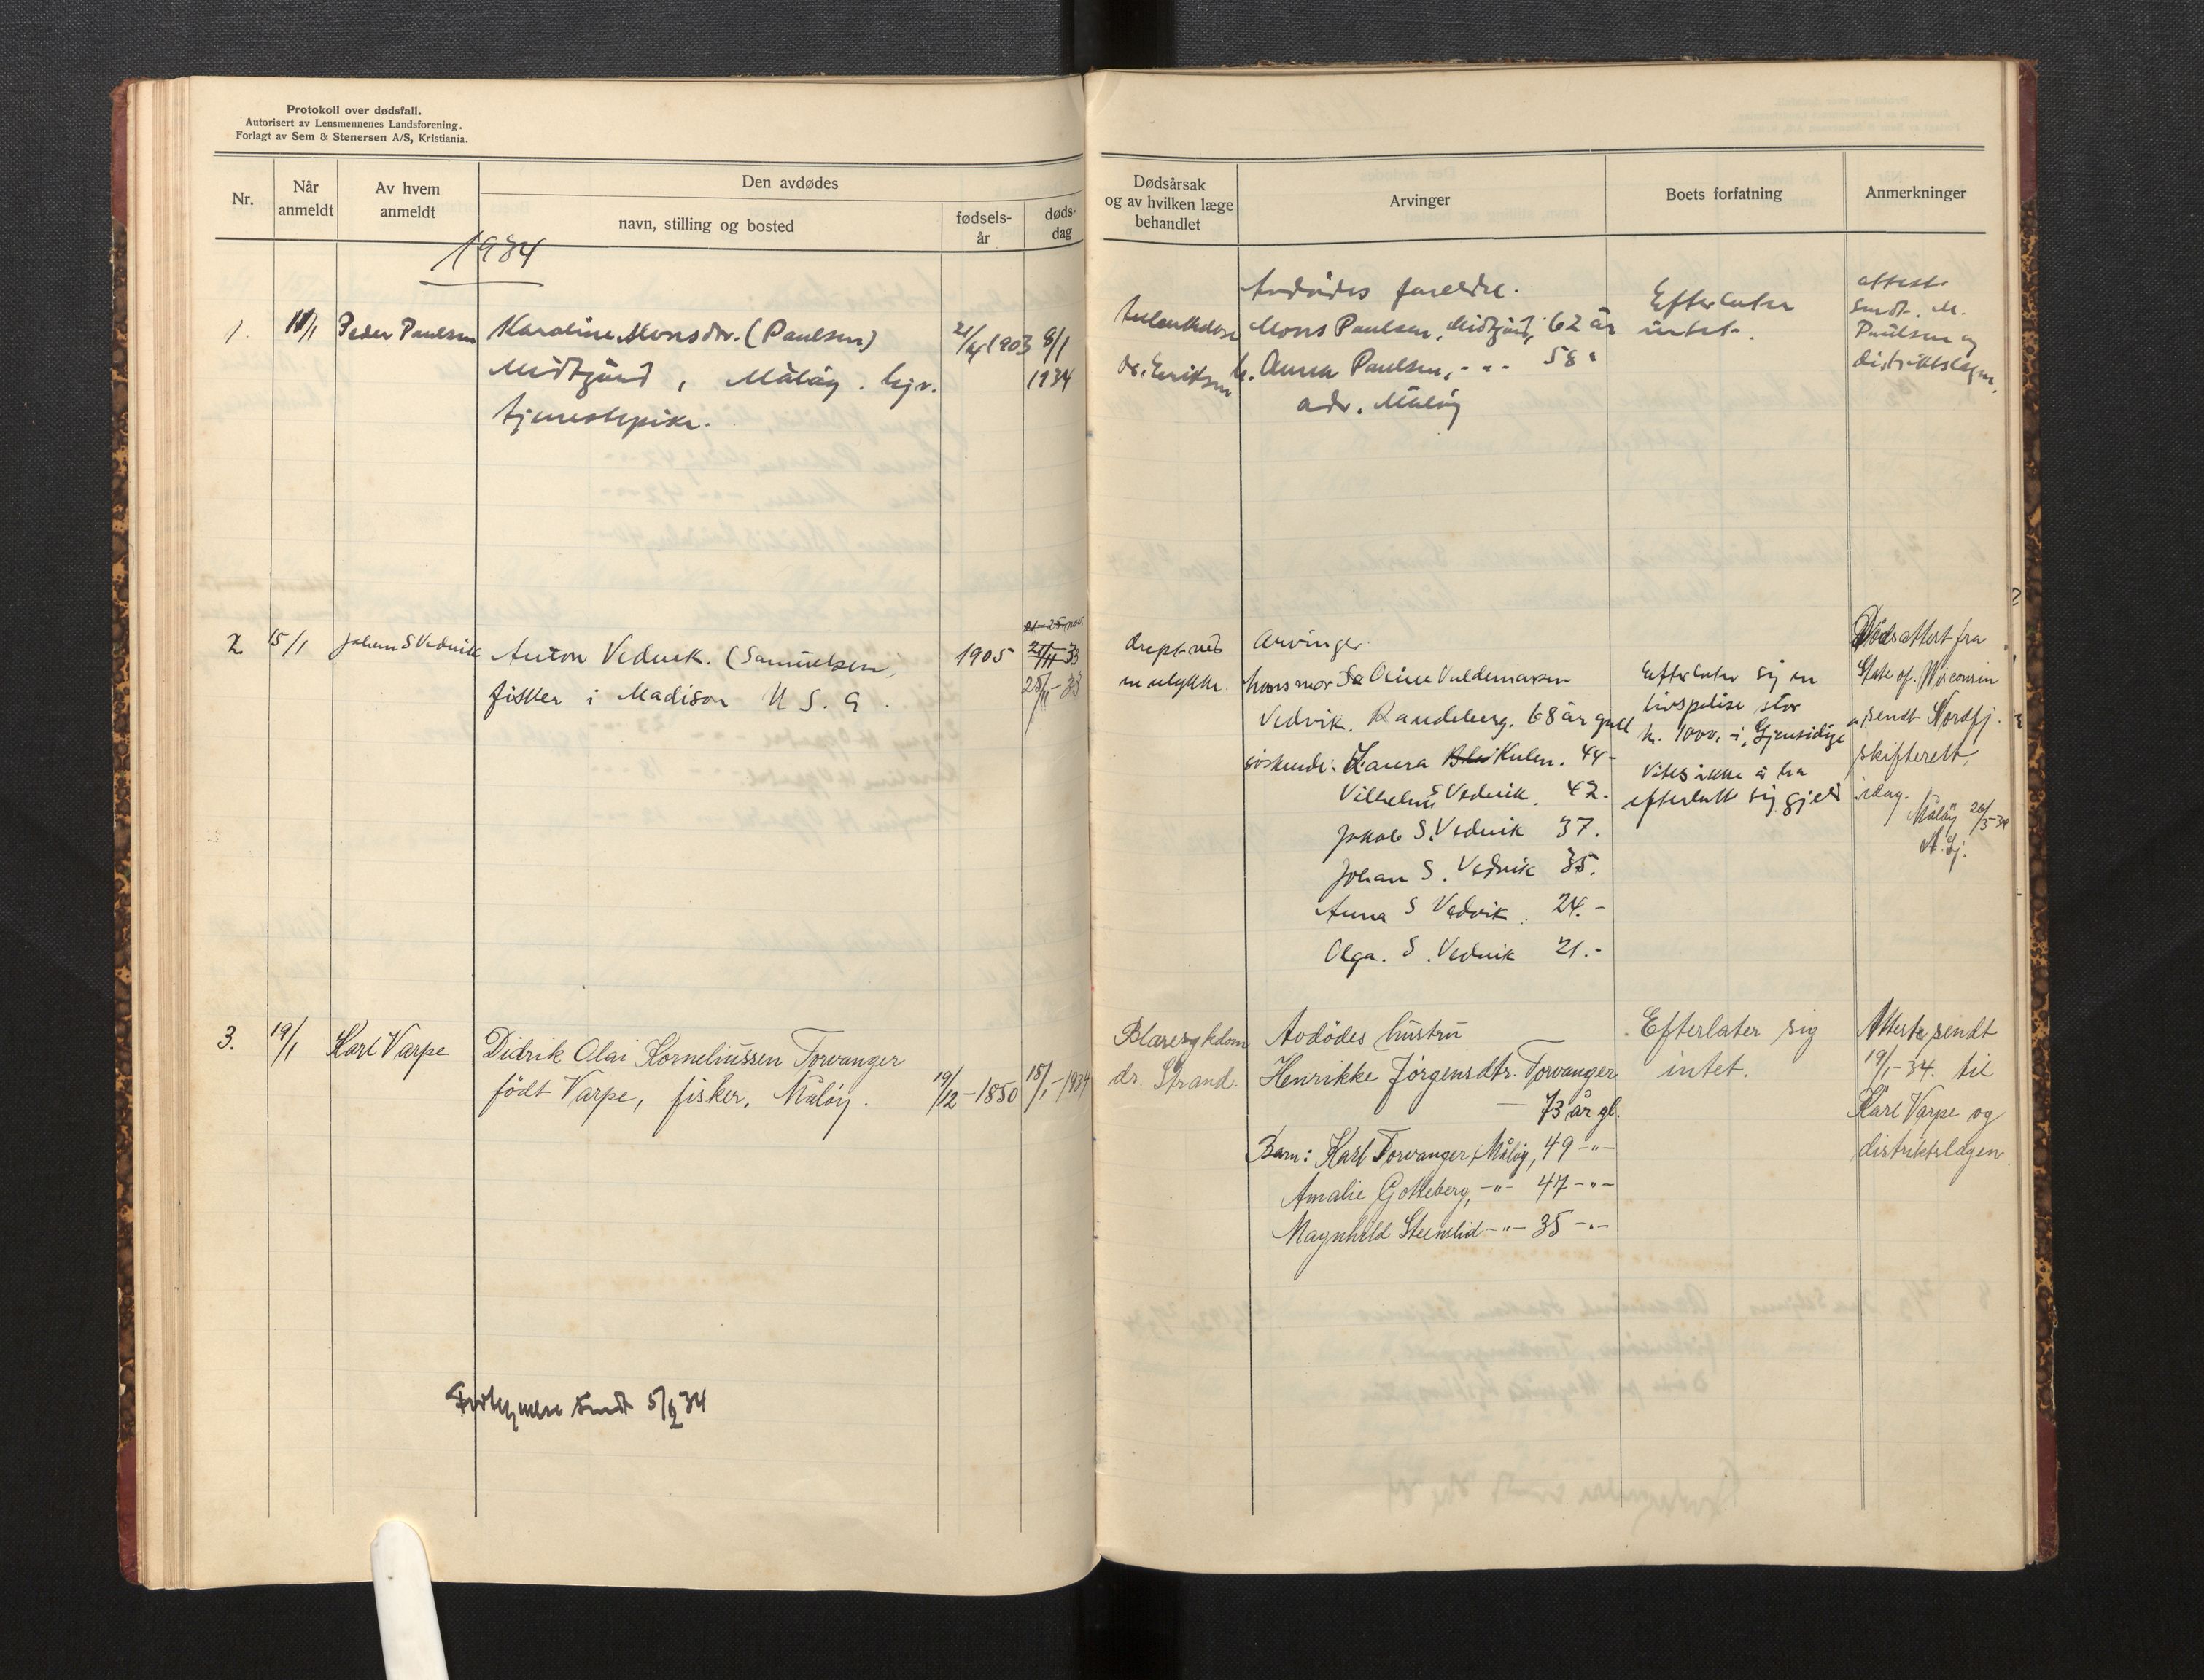 Protokoll over dødsfall.
Autorisert av Lensmennenes Landsforening.
Forlagt av Sem & Stenersen A/S, Kristiania.
Nr.
Når
anmeldt
Av hvem
anmeldt
Den avdødes
navn, stilling og bosted
fødsels-
år
døds-
dag
Dødsårsak
og av hvilken læge
behandlet
Arvinger
Boets forfatning
Anmerkninger
1934
1. 11/1 Peder Paulsen
Karoline Monsdtr. (Paulsen)
Midtgård, Måløy. hjv.
tjenestepike.
21/4 1903
8/1
1934
Tuberkulose
dr. Eriksen
Avdødes foreldre.
Mons Paulsen, Midtgård, 62 år
h. Anna Paulsen, - " - 58 "
adr. Måløy
Efterlater
intet.
attest
sendt. M.
Paulsen og
distriktslægen.
2 15/1 Johan S Vedvik
Anton Vedvik. (Samuelsen)
fisker i Madison U S. A.
1905
21/11-33
28/11-33
drept ved
en ulykke.
Arvinger.
hans mor Oline Valdemarsen
Vedvik. Raudeberg. 68 år gall
søskende: Laura Kulen. 44 -
Vilhelm S Vedvik. 42.
Jakob S. Vedvik 37.
Johan S. Vedvik 35.
Anna S Vedvik. 24. -
Olga. S. Vedvik 21. -
Efterlater sig en
livspolise stor
kr. 1000, i, Gjensidige
Vites ikke å ha
efterlatt sig gjeld
Dødsattest fra
State of. Wisconsin
sendt Nordfj.
skifterett,
idag.
Måløy 26/3-34
3. 19/1 Karl Varpe
Didrik Olai Korneliussen Torvanger
født Varpe, fisker, Måløy.
19/12-1850
18/1-1934
Blæresykdom
dr. Strand.
Avdødes hustru
Henrikke Jørgensdtr. Torvanger
— 73 år gl.
Barn: Karl Torvanger, Måløy, 49 -"-
Amalie Gotteberg, -"- 47 -"-
Magnhild Steinslid -"- 35 -"-
Efterlater sig
intet.
Attester sendt
19/1-34. til
Karl Varpe og
distriktslægen
sendt 5/2 34